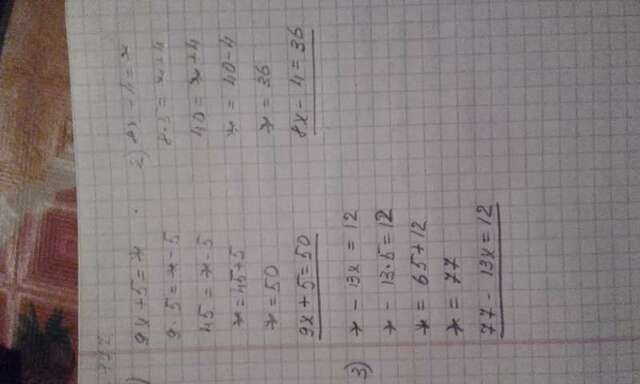 1) 9x + 5 = *
9 · 5 = * - 5
45 = * - 5
* = 45 + 5
* = 50
9x + 5 = 50
2) 8x - 4 = *
8 · 5 = * + 4
40 = * + 4
* = 40 - 4
* = 36
8x - 4 = 36
3) * - 13x = 12
* - 13 · 5 = 12
* = 65 + 12
* = 77
77 - 13x = 12